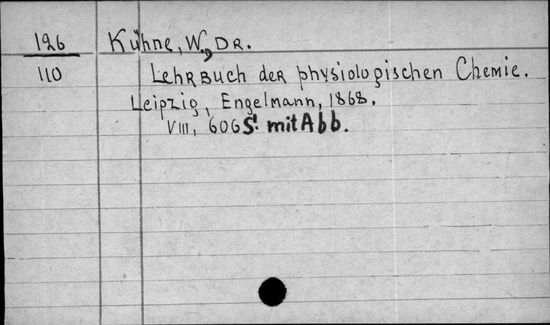 126 Kühne, W., DR.
110 Lehrbuch der physiologischen Chemie.
Leipzig, Engelmann, 1868.
VIII, 606 S. mit Abb.